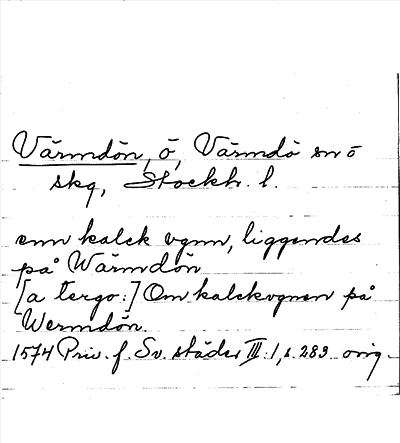 Värmdön, ö, Värmdö sn o
skg, Stockh. l.
enn kalck vgnn, liggendes
på Wärmdön
[a tergo:] Om kalckvgnen på
Wermdön.
1574 Priv. f. Sv. städer III:1, s. 283 orig.